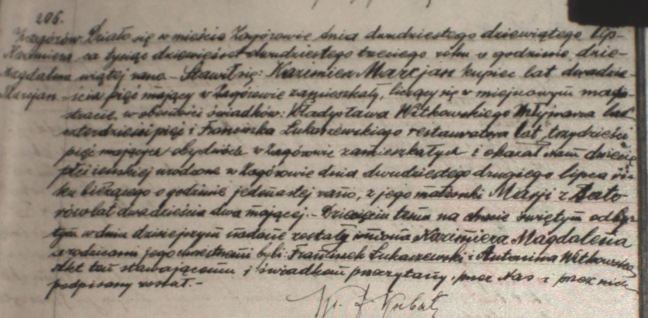 206.
Zagórów. Działo się w mieście Zagórowie dnia dwudziestego dziewiątego lip-
Kazimiera ca tysiąc dziewięćset dwudziestego trzeciego roku o godzinie dzie-
Magdalena wiątej rano. – Stawił się: Kazimierz Marcjan kupiec lat dwadzie-
Marcjan. ścia pięć mający w Zagórowie zamieszkały, liczący się w miejscowym
w obecności świadków: Władysława Witkowskiego młynarza lat
czterdzieści pięć i Franciszka Łukaszewskiego restauratora lat trzydzieści
pięć mających obydwóch w Zagórowie zamieszkałych i okazał Nam dziecię
płci żeńskiej urodzone w Zagórowie dnia dwudziestego drugiego lipca ro-
ku bieżącego o godzinie jedenastej rano, z jego małżonki Marji z
lat dwadzieścia dwa mającej. – Dziecięciu temu na chrzcie świętym odby-
tym w dniu dzisiejszym nadane zostały imiona Kazimiera Magdalena
a rodzicami jego chrzestnemi byli: Franciszek Łukaszewski i Antonina Witkowska
Akt ten stawiającemu i świadkom przeczytany, przez Nas i przez nich
podpisany został. –